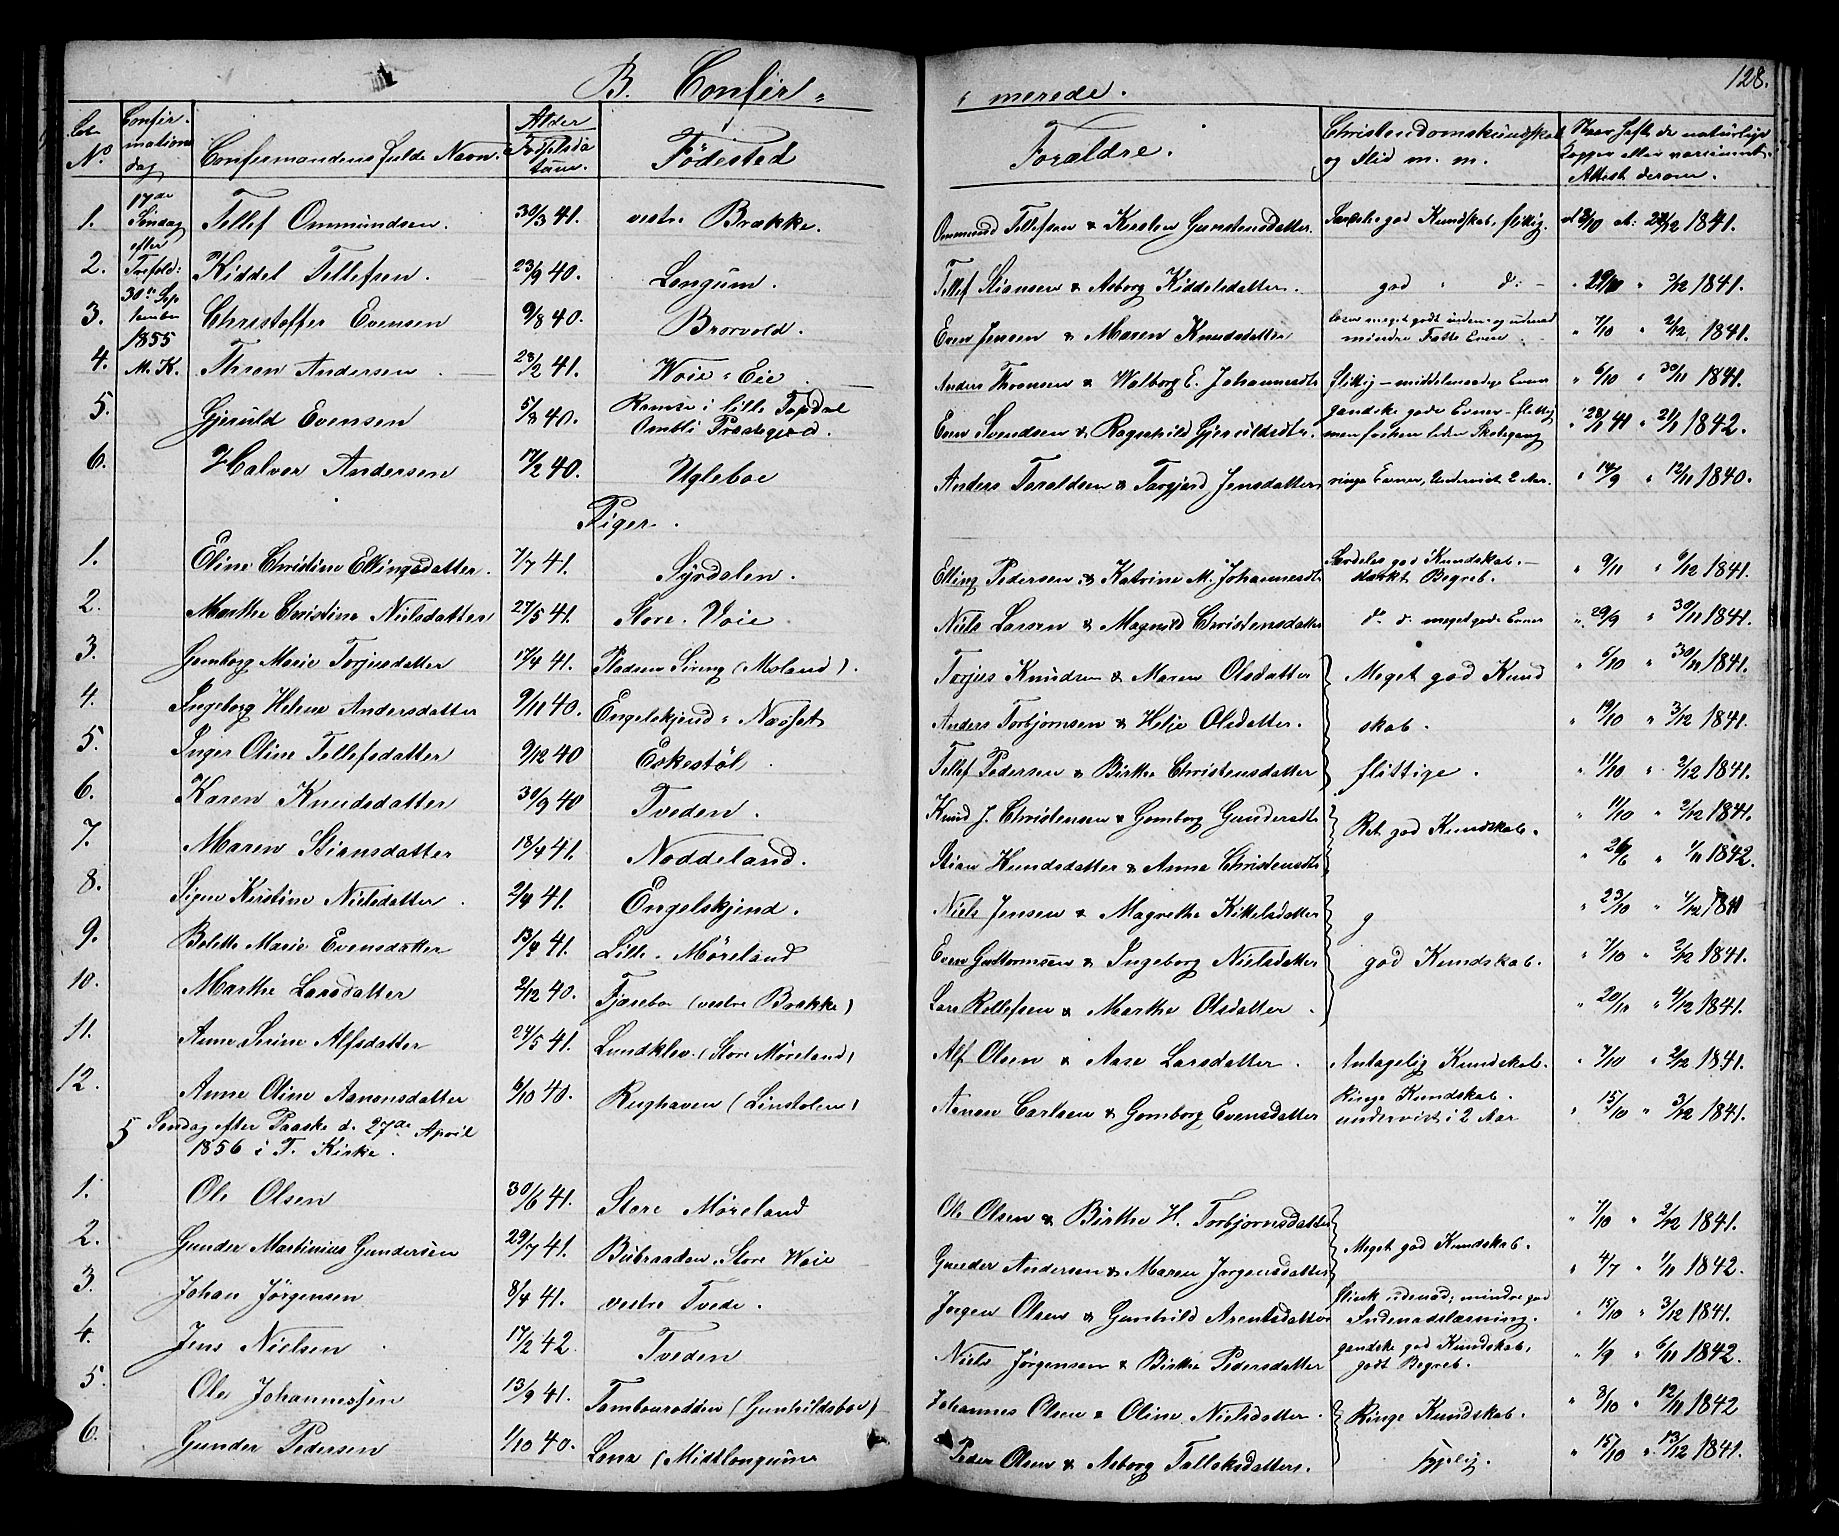 B. Confir-
merede.
128.
Lb. No
Confirmations dag
Confirmandens fulde Navn.
Alder Fødselsdatum.
Fødested
Forældre.
Christendomskundskab og Flid m. m.
Naar hafte de naturlige Kopper eller vaccineret. Attest derom.
17de Søndag efter Trefold: 30te September 1855 M. K.
1. Tellef Ommundsen. 30/3 41. vestre Brække. Ommund Tellefsen & Kirsten Gunstensdatter. Særdeles god Kundskab, flittig. 1841.
2. Kiddel Tellefsen. 23/9 40. Longum. Tellef Stiansen & Aaborg Kiddelsdatter. god " d: - 3/12 1841.
3. Christoffer Evensen 9/8 40. Brorvold. Even Jensen & Maren Knudsdatter læser meget godt inden og udenad mindre Fatte Evne. " 7/10 " 2/12 1841.
4. Thron Andersen 28/2 41. Woie " Eie. Anders Thronsen & Walborg E. Johannesdtr flittig - middelmaadige Evner " 6/10 " 30/11 1841.
5. Gjeruld Evensen 5/8 40. i lille Topdal Omlli Præstegjeld. Even Svendsen & Ragnhild Gjeruldsdtr. ganske gode Evner - flittig men liden Skolegang 1842.
6. Halvor Andersen 17/2 40. Ugleboe Anders Taraldsen & Torgjerd Jensdatter ringe Evner, undervist 2 Aar. " 14/9 " 12/11 1840.
Piger.
1. Eline Christine Ellingsdatter. 7/7 41. Syrdalen. Elling Pedersen & Katrine M. Johannesdtr Særdeles god Kundskab. - stærkt Begreb. " 9/11 " 6/12 1841.
2. Marthe Christine Nielsdatter 27/5 41. Store Voie Niels Larsen & Magnild Christensdatter d. d. meget gode Evner " 29/9 " 30/11 1841.
3. Gomborg Marie Torjusdatter 17/4 41. Pladsen Sireng (Moland). Torjus Knudsen & Maren Olsdatter Meget god Kund " 6/10 " 30/11 1841.
4. Ingeborg Helene Andersdatter 9/11 40. Engelskjend " Næsset Anders Torbjørnsen & Helje Olsdatter. skab. " 19/10 " 3/12 1841.
5. Inger Oline Tellefsdatter 9/12 40 Eskestøl. Tellef Pedersen & Birthe Christensdatter flittige. " 11/10 " 2/12 1841.
6. Karen Knudsdatter 30/9 40 Tveden. Knud J. Christensen & Gomborg Gundersdtr Ret god Kundskab. " 11/10 " 2/12 1841.
7. Maren Stiansdatter 18/4 41. Noddeland. Stian Knudsdatter & Anne Christensdtr " 1/11 1842.
8. Signe Kirstine Nielsdatter. 2/4 41. Engelskjend. Niels Jensen & Magrethe Kittelsdatter g " 23/10 " 1/12 1841
9. Bolette Marie Evensdatter 13/4 41. Lille Møreland Even Guttormsen & Ingeborg Nielsdatter god Kundskab. " 7/10 " 2/12 1841.
10. Marthe Larsdatter 2/12 40. Tjæreboe (vestre Brække) Lars Rollefsen & Marthe Olsdatter. " 20/10 " 4/12 1841.
11. Anne Serine Alfsdatter 24/5 41. Lundklev (Store Møreland) Alf Olsen & Aase Larsdatter. Antagelig Kundskab. " 7/10 " 2/12 1841.
12. Anne Oline Aanonsdatter 6/10 40. Rughaven (Linstølen) Aanen Carlsen & Gomborg Evensdatter Ringe Kundskab. undervist i 2 Aar " 15/10 " 3/12 1841.
5 Søndag efter Paaske d. 27de April
1856 i T. Kirke.
1. Ole Olsen 30/6 41. Store Møreland Ole Olsen & Birthe H. Torbjørnsdatter " 7/10 " 2/12 1841.
2. Gunder Martinius Gundersen 29/7 41. Bubraaden, Store Woie Gunder Andersen & Maren Jørgensdatter Meget god Kundskab. " 4/7 " 1/11 1842.
3. Johan Jörgensen 8/4 41. vestre Tvede. Jørgen Olsen & Gunhild Arentsdatter flink udenad; mindre god Indenadslæsning. " 15/10 " 3/12 1841.
4. Jens Nielsen 17/2 42. Tveden Niels Jørgensen & Birthe Pedersdatter ganske god Kundskab, godt Begreb. " 1/9 " 6/11 1842.
5. Ole Johannessen 13/9 41. Tambourodden (Gunhildsboe) Johannes Olsen & Oline Nielsdatter. Ringe Kundskab. " 8/10 " 12/11 1842
6. Gunder Pedersen 1/10 40. Lona (Midtlongum) Peder Olsen & Aaborg Tallaksdatter. " 15/10 " 13/12 1841.